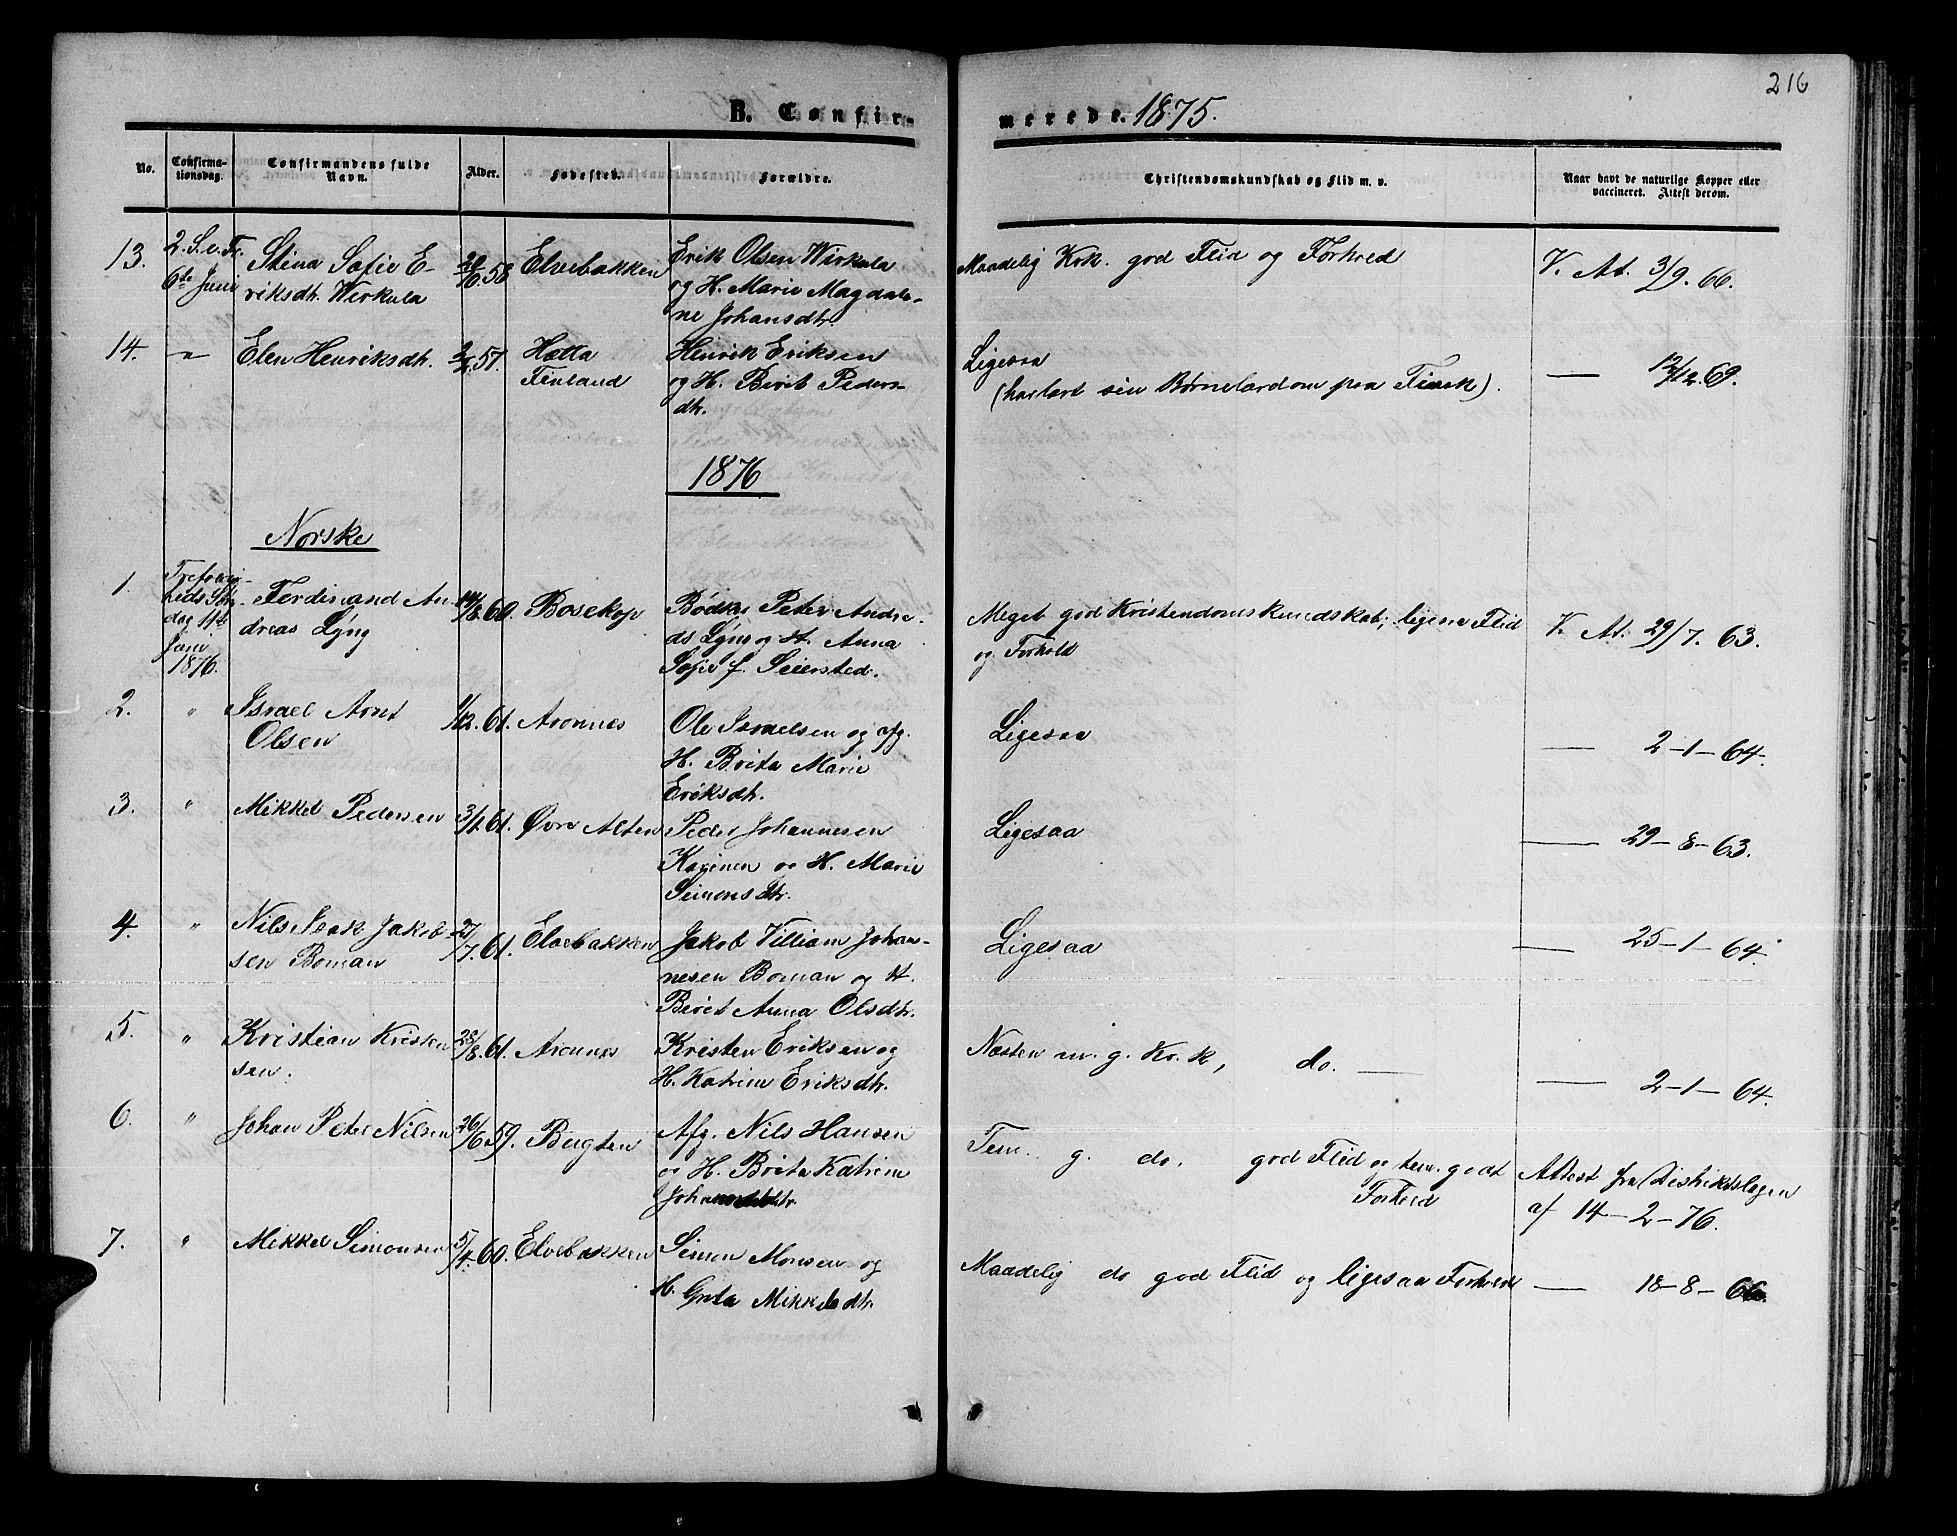 216
B. Confirmerede. 1875.
No. Confirmationsdag. Confirmandens fulde Navn. Alder. Fødested. Forældre. Christendomskundskab og Flid m. v. Naar havt de naturlige Kopper eller vaccineret. Attest derom.
13. 2. S. e. Tr. 6te Juni
Stina Sofie E-
riksdt. Wirkula
58 Elvebakken
Erik Olsen Wirkula
og H. Marie Magdale-
ne Johansdtr.
Maadelig Krk. god Flid og Forhold
V. At. 3/9. 66.
14. Elen Henriksdt. 57. Hætta
Finland
Henrik Eriksen
og H. Berit Peders-
dt.
Ligesaa
(har lært sin Børnelærdom paa Finsk).
— 12/12. 69.
1876
Norske
1. Trefoldig-
heds Søn-
dag 11te
Juni
1876.
Ferdinand An-
dreas Lyng
14/8. 60. Bosekop
Bødker Peter Andre-
as Lyng og H. Anna
Sofie f. Seiersted.
Meget god Kristendomskundskab; ligesaa Flid
og Forhold
V. At. 29/7. 63.
2. " Israel Arnt
Olsen
1/12. 61. Aronnes
Ole Israelsen og afg.
H. Brita Marie
Eriksdt.
Ligesaa
— 2-1-64.
3. " Mikkel Pedersen 3/1. 61. Øvre Alten
Peder Johannesen
Karinen og H. Marie
Simonsdtr.
Ligesaa
— 29-8-63.
4. " Nils Isak Jakob-
sen Boman
27/7. 61. Elvebakken
Jakob Villiam Johan-
nesen Boman og H.
Berit Anna Olsdtr.
Ligesaa
— 25-1-64.
5. " Kristian Kristen
sen.
28/8. 61. Aronnes
Kristen Eriksen og
H. Katrine Eriksdtr.
Næsten m. g. Kr. k, do. —
— 2-1-64.
6. " Johan Peter Nilsen 26/6. 59. Bugten
Afg. Nils Hansen
og H. Brita Katrine
Tem. g. do. god Flid og tem. godt
Forhold
Attest fra Distriktslægen
af 14-2-76.
7. " Mikkel Simonsen 5/4. 60. Elvebakken
Simon Monsen og
H. Greta Mikkelsdtr.
Maadelig do god Flid og ligesaa Forhold
— 18-8-66.